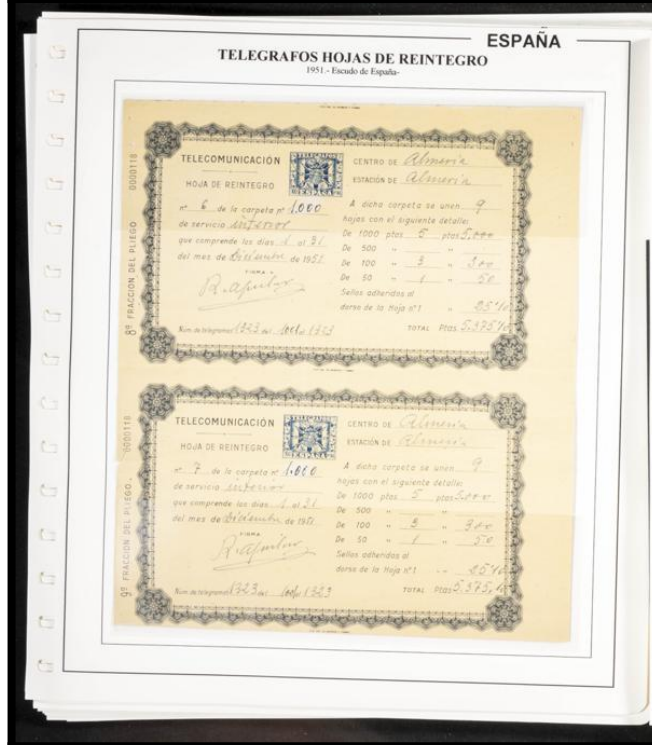 ESPAÑA
TELEGRAFOS HOJAS DE REINTEGRO
1951.- Escudo de España-
8º FRACCION DEL PLIEGO 0000118
TELECOMUNICACIÓN
HOJA DE REINTEGRO
nº 6 de la carpeta nº 1.000
de servicio interior
que comprende los días 1 al 31
del mes de Diciembre de 1951
FIRMA
R. Aguilar
Num. de telegramas 1323 del 1 al 1323
CENTRO DE Almería
ESTACIÓN DE Almería
A dicha carpeta se unen 9
hojas con el siguiente detalle:
De 1000 ptas 5 ptas 5.000
De 500 " "
De 100 " 3 " 300
De 50 " 1 " 50
Sellos adheridos al
dorso de la Hoja nº 1 " 25'10
TOTAL Ptas 5.375'10
9º FRACCION DEL PLIEGO. 0000118
TELECOMUNICACIÓN
HOJA DE REINTEGRO
nº 7 de la carpeta nº 1.000
de servicio interior
que comprende los días 1 al 31
del mes de Diciembre de 1951
FIRMA
R. Aguilar
Num. de telegramas 1323 del 1 al 1323
CENTRO DE Almería
ESTACIÓN DE Almería
A dicha carpeta se unen 9
hojas con el siguiente detalle:
De 1000 ptas 5 ptas 5.000
De 500 " "
De 100 " 3 " 300
De 50 " 1 " 50
Sellos adheridos al
dorso de la Hoja nº 1 " 25'10
TOTAL Ptas 5.375,10